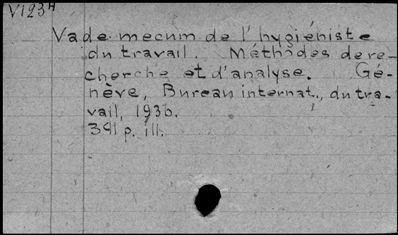 V1234
Vade mecum de l'hygiéniste
du travail. Méthodes de re-
cherche et d'analyse. Gé-
nève, Bureau internat., du tra-
vail, 1936.
391 p. ill.